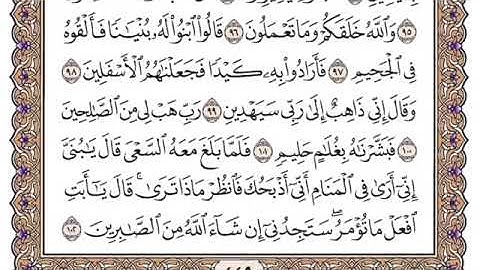 ٩٥ وَٱللَّهُ خَلَقَكُمْ وَمَا تَعْمَلُونَ ٩٦ قَالُوا۟ ٱبْنُوا۟ لَهُۥ بُنْيَٰنًا فَأَلْقُوهُ
فِى ٱلْجَحِيمِ ٩٧ فَأَرَادُوا۟ بِهِۦ كَيْدًا فَجَعَلْنَٰهُمُ ٱلْأَسْفَلِينَ ٩٨
وَقَالَ إِنِّى ذَاهِبٌ إِلَىٰ رَبِّى سَيَهْدِينِ ٩٩ رَبِّ هَبْ لِى مِنَ ٱلصَّٰلِحِينَ
١٠٠ فَبَشَّرْنَٰهُ بِغُلَٰمٍ حَلِيمٍ ١٠١ فَلَمَّا بَلَغَ مَعَهُ ٱلسَّعْىَ قَالَ يَٰبُنَىَّ
إِنِّىٓ أَرَىٰ فِى ٱلْمَنَامِ أَنِّىٓ أَذْبَحُكَ فَٱنظُرْ مَاذَا تَرَىٰ ۚ قَالَ يَٰٓأَبَتِ
ٱفْعَلْ مَا تُؤْمَرُ ۖ سَتَجِدُنِىٓ إِن شَآءَ ٱللَّهُ مِنَ ٱلصَّٰبِرِينَ ١٠٢